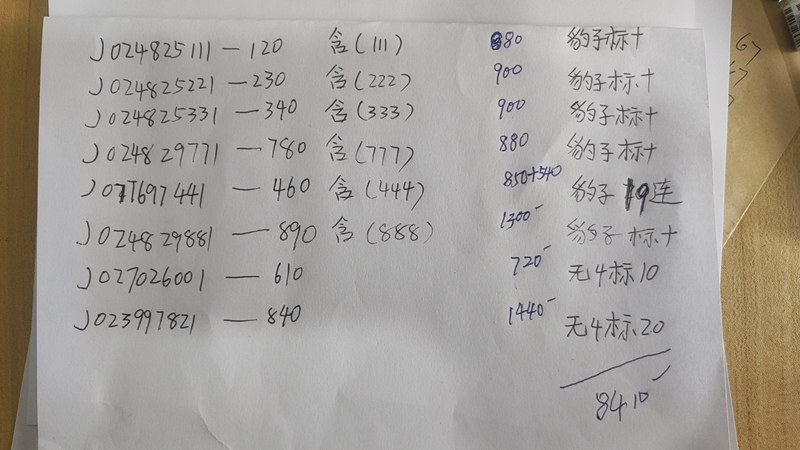 J024825111—120 含(111) 880 豹子标十
J024825221—230 含(222) 900 豹子标十
J024825331—340 含(333) 900 豹子标十
J024829771—780 含(777) 880 豹子标十
J071697441—460 含(444) 850+540 豹子 19连
J024829881—890 含(888) 1300- 豹子标十
J027026001—610 720- 无4标10
J023997821—840 1440- 无4标20
8410-